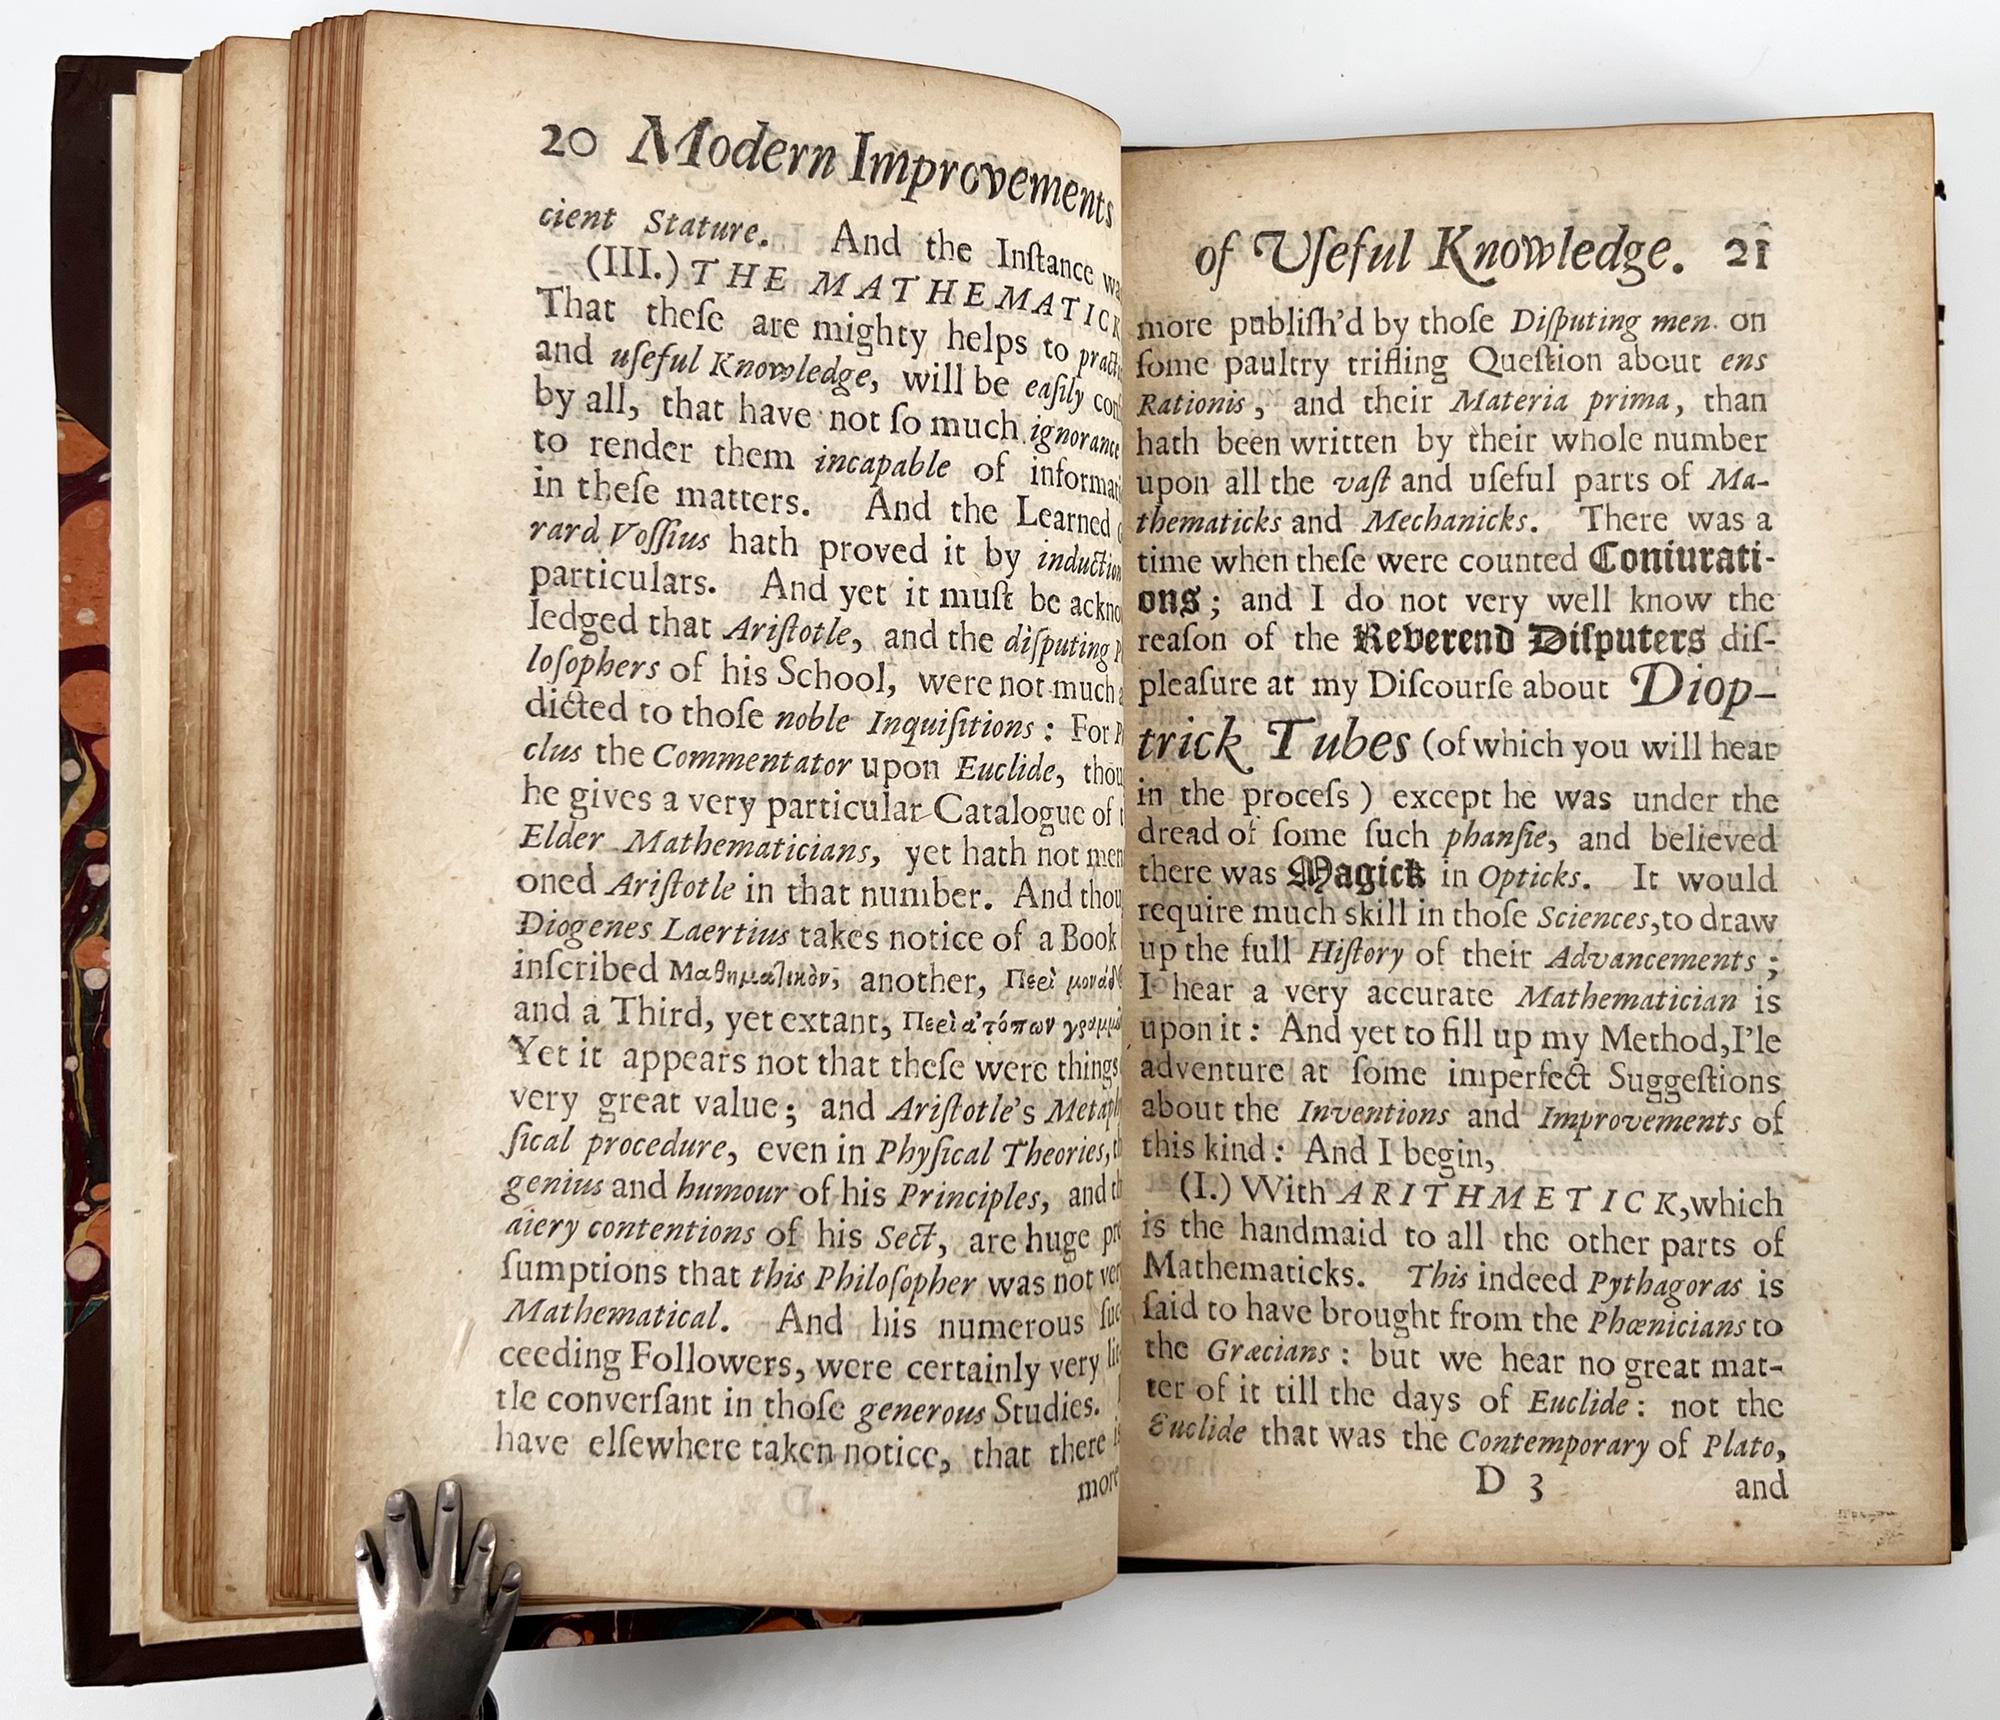 20 Modern Improvements
cient Stature. And the Inſtance
(III.) THE MATHEMATICK
That theſe are mighty helps to
and uſeful Knowledge, will be eaſily
by all, that have not ſo much ignorance
to render them incapable of
in theſe matters. And the Learned
rard Voſſius hath proved it by induction
particulars. And yet it muſt be
ledged that Ariſtotle, and the diſputing
loſophers of his School, were not much
dicted to thoſe noble Inquiſitions : For
clus the Commentator upon Euclide,
he gives a very particular Catalogue of
Elder Mathematicians, yet hath not
oned Ariſtotle in that number. And
Diogenes Laertius takes notice of a Book
inſcribed another, Περὶ
and a Third, yet extant,
Yet it appears not that theſe were things
very great value; and Ariſtotle's
ſical procedure, even in Phyſical Theories,
genius and humour of his Principles, and
aiery contentions of his Sect, are huge
ſumptions that this Philoſopher was not
Mathematical. And his numerous
ceeding Followers, were certainly very
tle converſant in thoſe generous Studies.
have elſewhere taken notice, that there
more
of Uſeful Knowledge. 21
more publiſh'd by thoſe Diſputing men on
ſome paultry trifling Queſtion about ens
Rationis, and their Materia prima, than
hath been written by their whole number
upon all the vaſt and uſeful parts of Ma-
thematicks and Mechanicks. There was a
time when theſe were counted Coniurati-
ons; and I do not very well know the
reaſon of the Reverend Diſputers diſ-
pleaſure at my Diſcourſe about Diop-
trick Tubes (of which you will hear
in the proceſs) except he was under the
dread of ſome ſuch phanſie, and believed
there was Magick in Opticks. It would
require much skill in thoſe Sciences, to draw
up the full Hiſtory of their Advancements;
I hear a very accurate Mathematician is
upon it: And yet to fill up my Method, I'le
adventure at ſome imperfect Suggeſtions
about the Inventions and Improvements of
this kind: And I begin,
(I.) With ARITHMETICK, which
is the handmaid to all the other parts of
Mathematicks. This indeed Pythagoras is
ſaid to have brought from the Phœnicians to
the Græcians: but we hear no great mat-
ter of it till the days of Euclide: not the
Euclide that was the Contemporary of Plato,
D 3 and